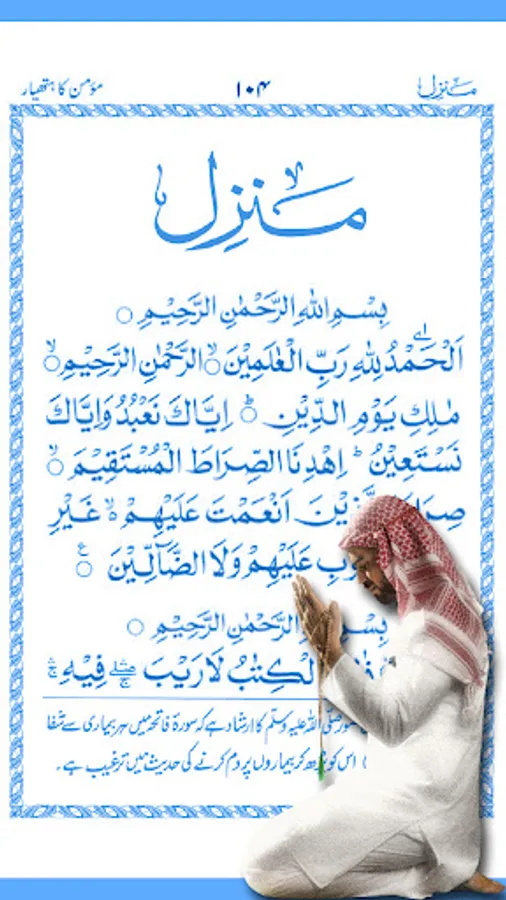 منزل ۱۰۴ مؤمن کا ہتھیار
منزل
بِسْمِ اللهِ الرَّحْمٰنِ الرَّحِيْمِ ○
اَلْحَمْدُ لِلّٰهِ رَبِّ الْعٰلَمِيْنَ ۙ الرَّحْمٰنِ الرَّحِيْمِ ۙ
مٰلِكِ يَوْمِ الدِّيْنِ ؕ اِيَّاكَ نَعْبُدُ وَاِيَّاكَ
نَسْتَعِيْنُ ؕ اِهْدِنَا الصِّرَاطَ الْمُسْتَقِيْمَ ۙ
اَنْعَمْتَ عَلَيْهِمْ ۙ غَيْرِ
عَلَيْهِمْ وَلَا الضَّآلِّيْنَ ○
الرَّحْمٰنِ الرَّحِيْمِ ○
الْكِتٰبُ لَا رَيْبَ فِيْهِ
صلی اللہ علیہ وسلم کا ارشاد ہے کہ سورۃ فاتحہ میں ہر بیماری سے شفا
اس کو پڑھ کر بیماروں پر دم کرنے کی حدیث میں ترغیب ہے۔